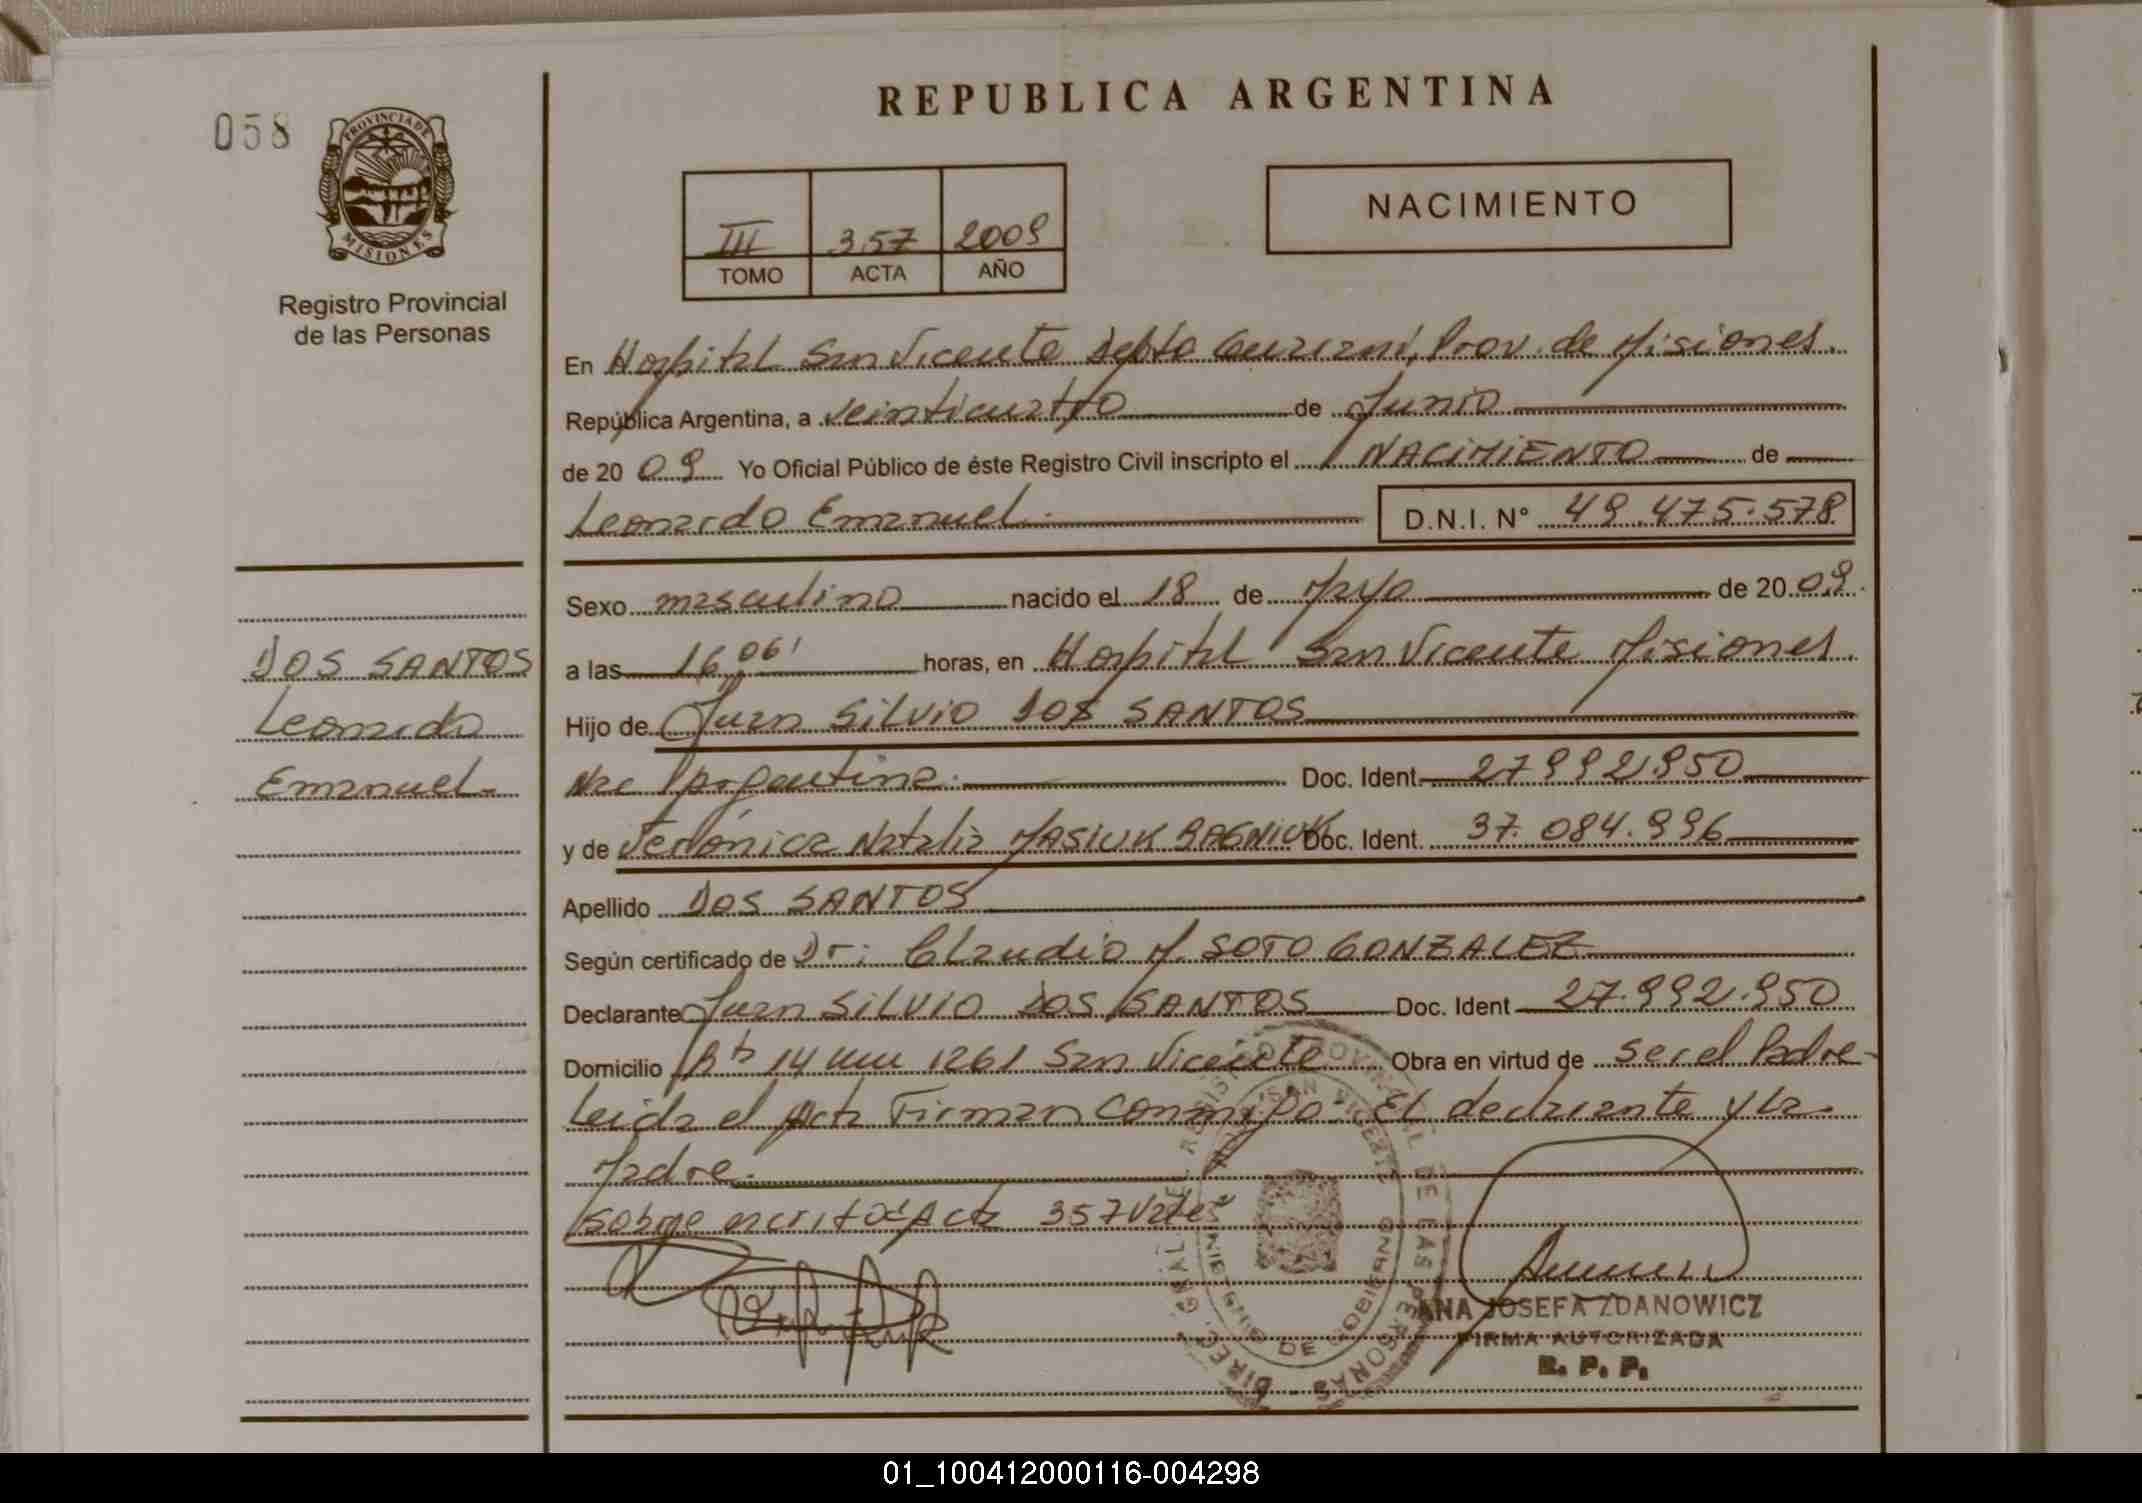 REPUBLICA ARGENTINA
058
PROVINCIA DE
MISIONES
Registro Provincial
de las Personas
NACIMIENTO
III 357 2009
TOMO ACTA AÑO
En Hospital San Vicente Depto Guaraní, Prov. de Misiones.
República Argentina, a veinticuatro de Junio
de 20 09 Yo Oficial Público de éste Registro Civil inscripto el NACIMIENTO de
Leonardo Emanuel. D.N.I. N° 49.475.578
Sexo masculino nacido el 18 de Mayo de 20 09.
DOS SANTOS
Leonardo
Emanuel.
a las 16,06' horas, en Hospital San Vicente Misiones.
Hijo de Juan Silvio DOS SANTOS
Nac Argentina. Doc. Ident. 27992.950
y de Verónica Natalia MASIUK BAGNIUK Doc. Ident. 37.084.996
Apellido DOS SANTOS
Según certificado de Dr: Claudio M. SOTO GONZALEZ
Declarante Juan Silvio DOS SANTOS Doc. Ident 27.992.950
Domicilio 14 1261 San Vicente Obra en virtud de ser el Padre
Leida el Acta Firman conmigo. El declarante y la
Madre.
Sobre escrito: Acta 357 Vale
DIREC. GRAL. DEL REGISTRO PROVINCIAL DE LAS PERSONAS
SAN VICENTE
DE GOBIERNO
ANA JOSEFA ZDANOWICZ
FIRMA AUTORIZADA
R. P. P.
01_100412000116-004298